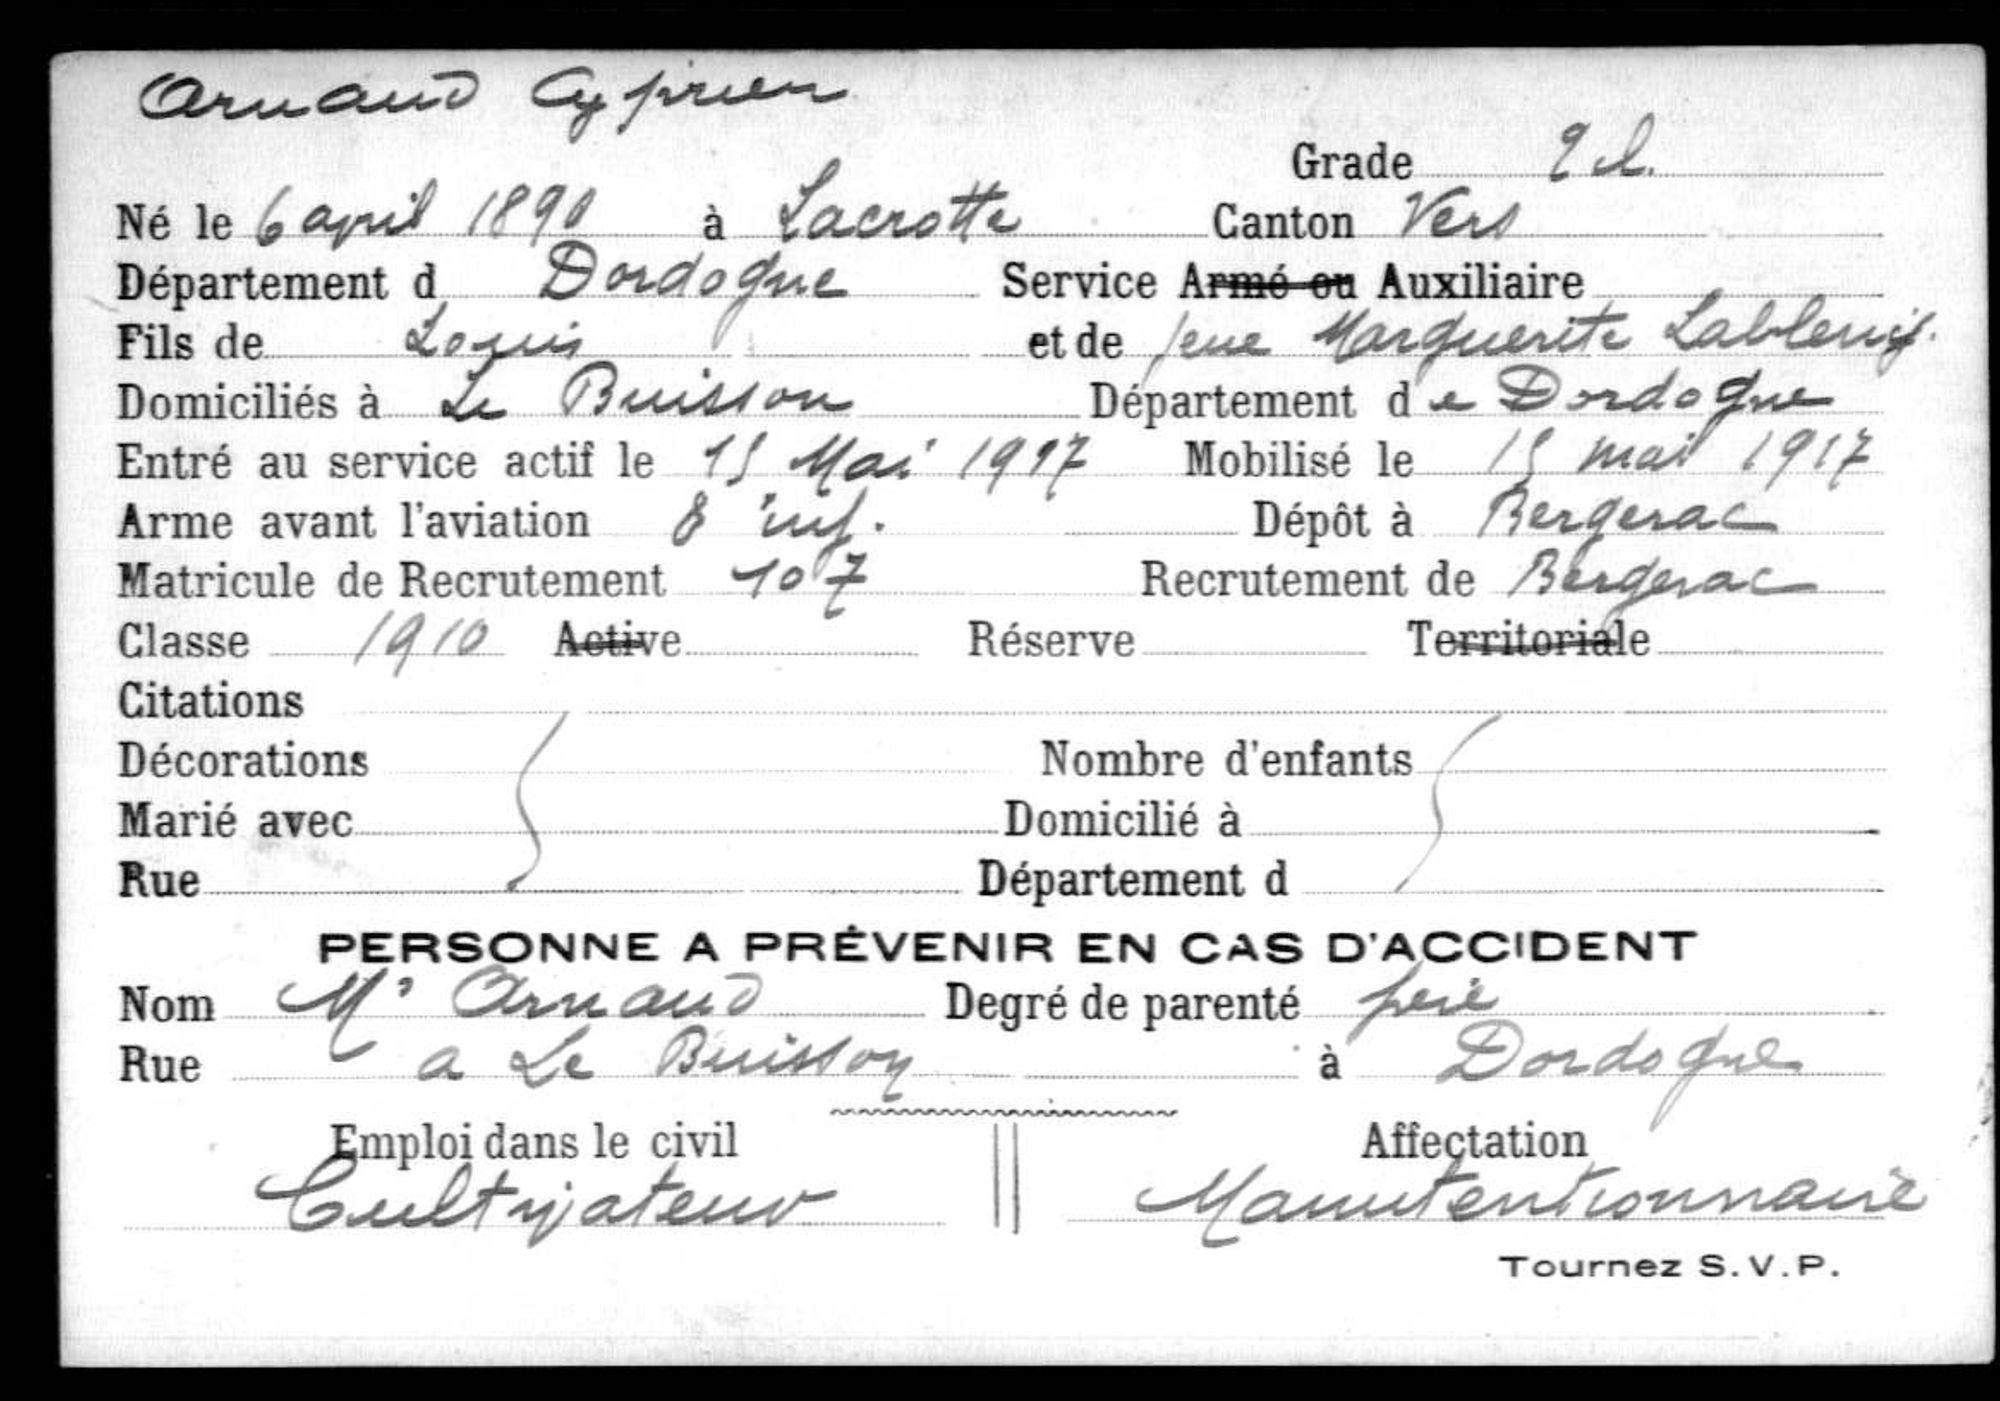 Arnaud Cyprien
Grade 2 cl.
Né le 6 april 1890 à Lacrotte Canton Vers
Département d Dordogne Service Armé ou Auxiliaire
Fils de Louis et de feue Marguerite
Domiciliés à Le Buisson Département de Dordogne
Entré au service actif le 15 Mai 1917 Mobilisé le 15 mai 1917
Arme avant l'aviation 8 inf. Dépôt à Bergerac
Matricule de Recrutement 107 Recrutement de Bergerac
Classe 1910 Active Réserve Territoriale
Citations
Décorations Nombre d'enfants
Marié avec Domicilié à
Rue Département d
PERSONNE A PRÉVENIR EN CAS D'ACCIDENT
Nom Mr Arnaud Degré de parenté père
Rue a Le Buisson à Dordogne
Emploi dans le civil Affectation
Cultivateur Manutentionnaire
Tournez S.V.P.